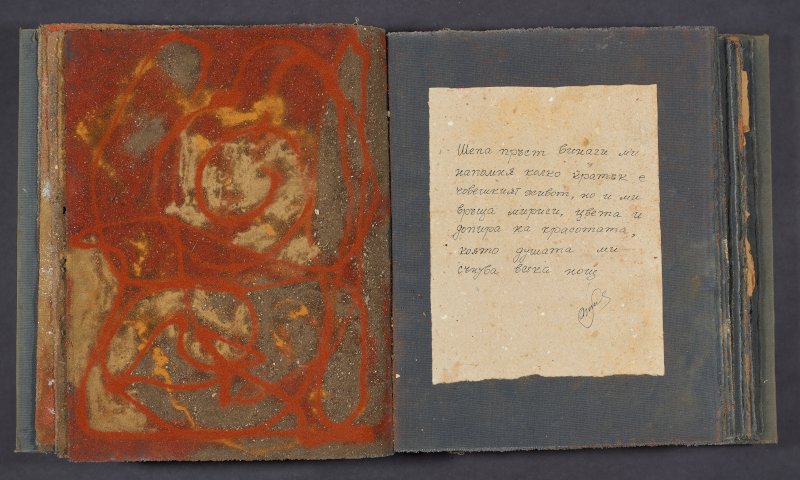 Шепа пръст винаги ми
напомня колко кратък е
човешкият живот, но и ми
връща мириси, цвета и
допира на красотата,
която душата ми
сънува всяка нощ